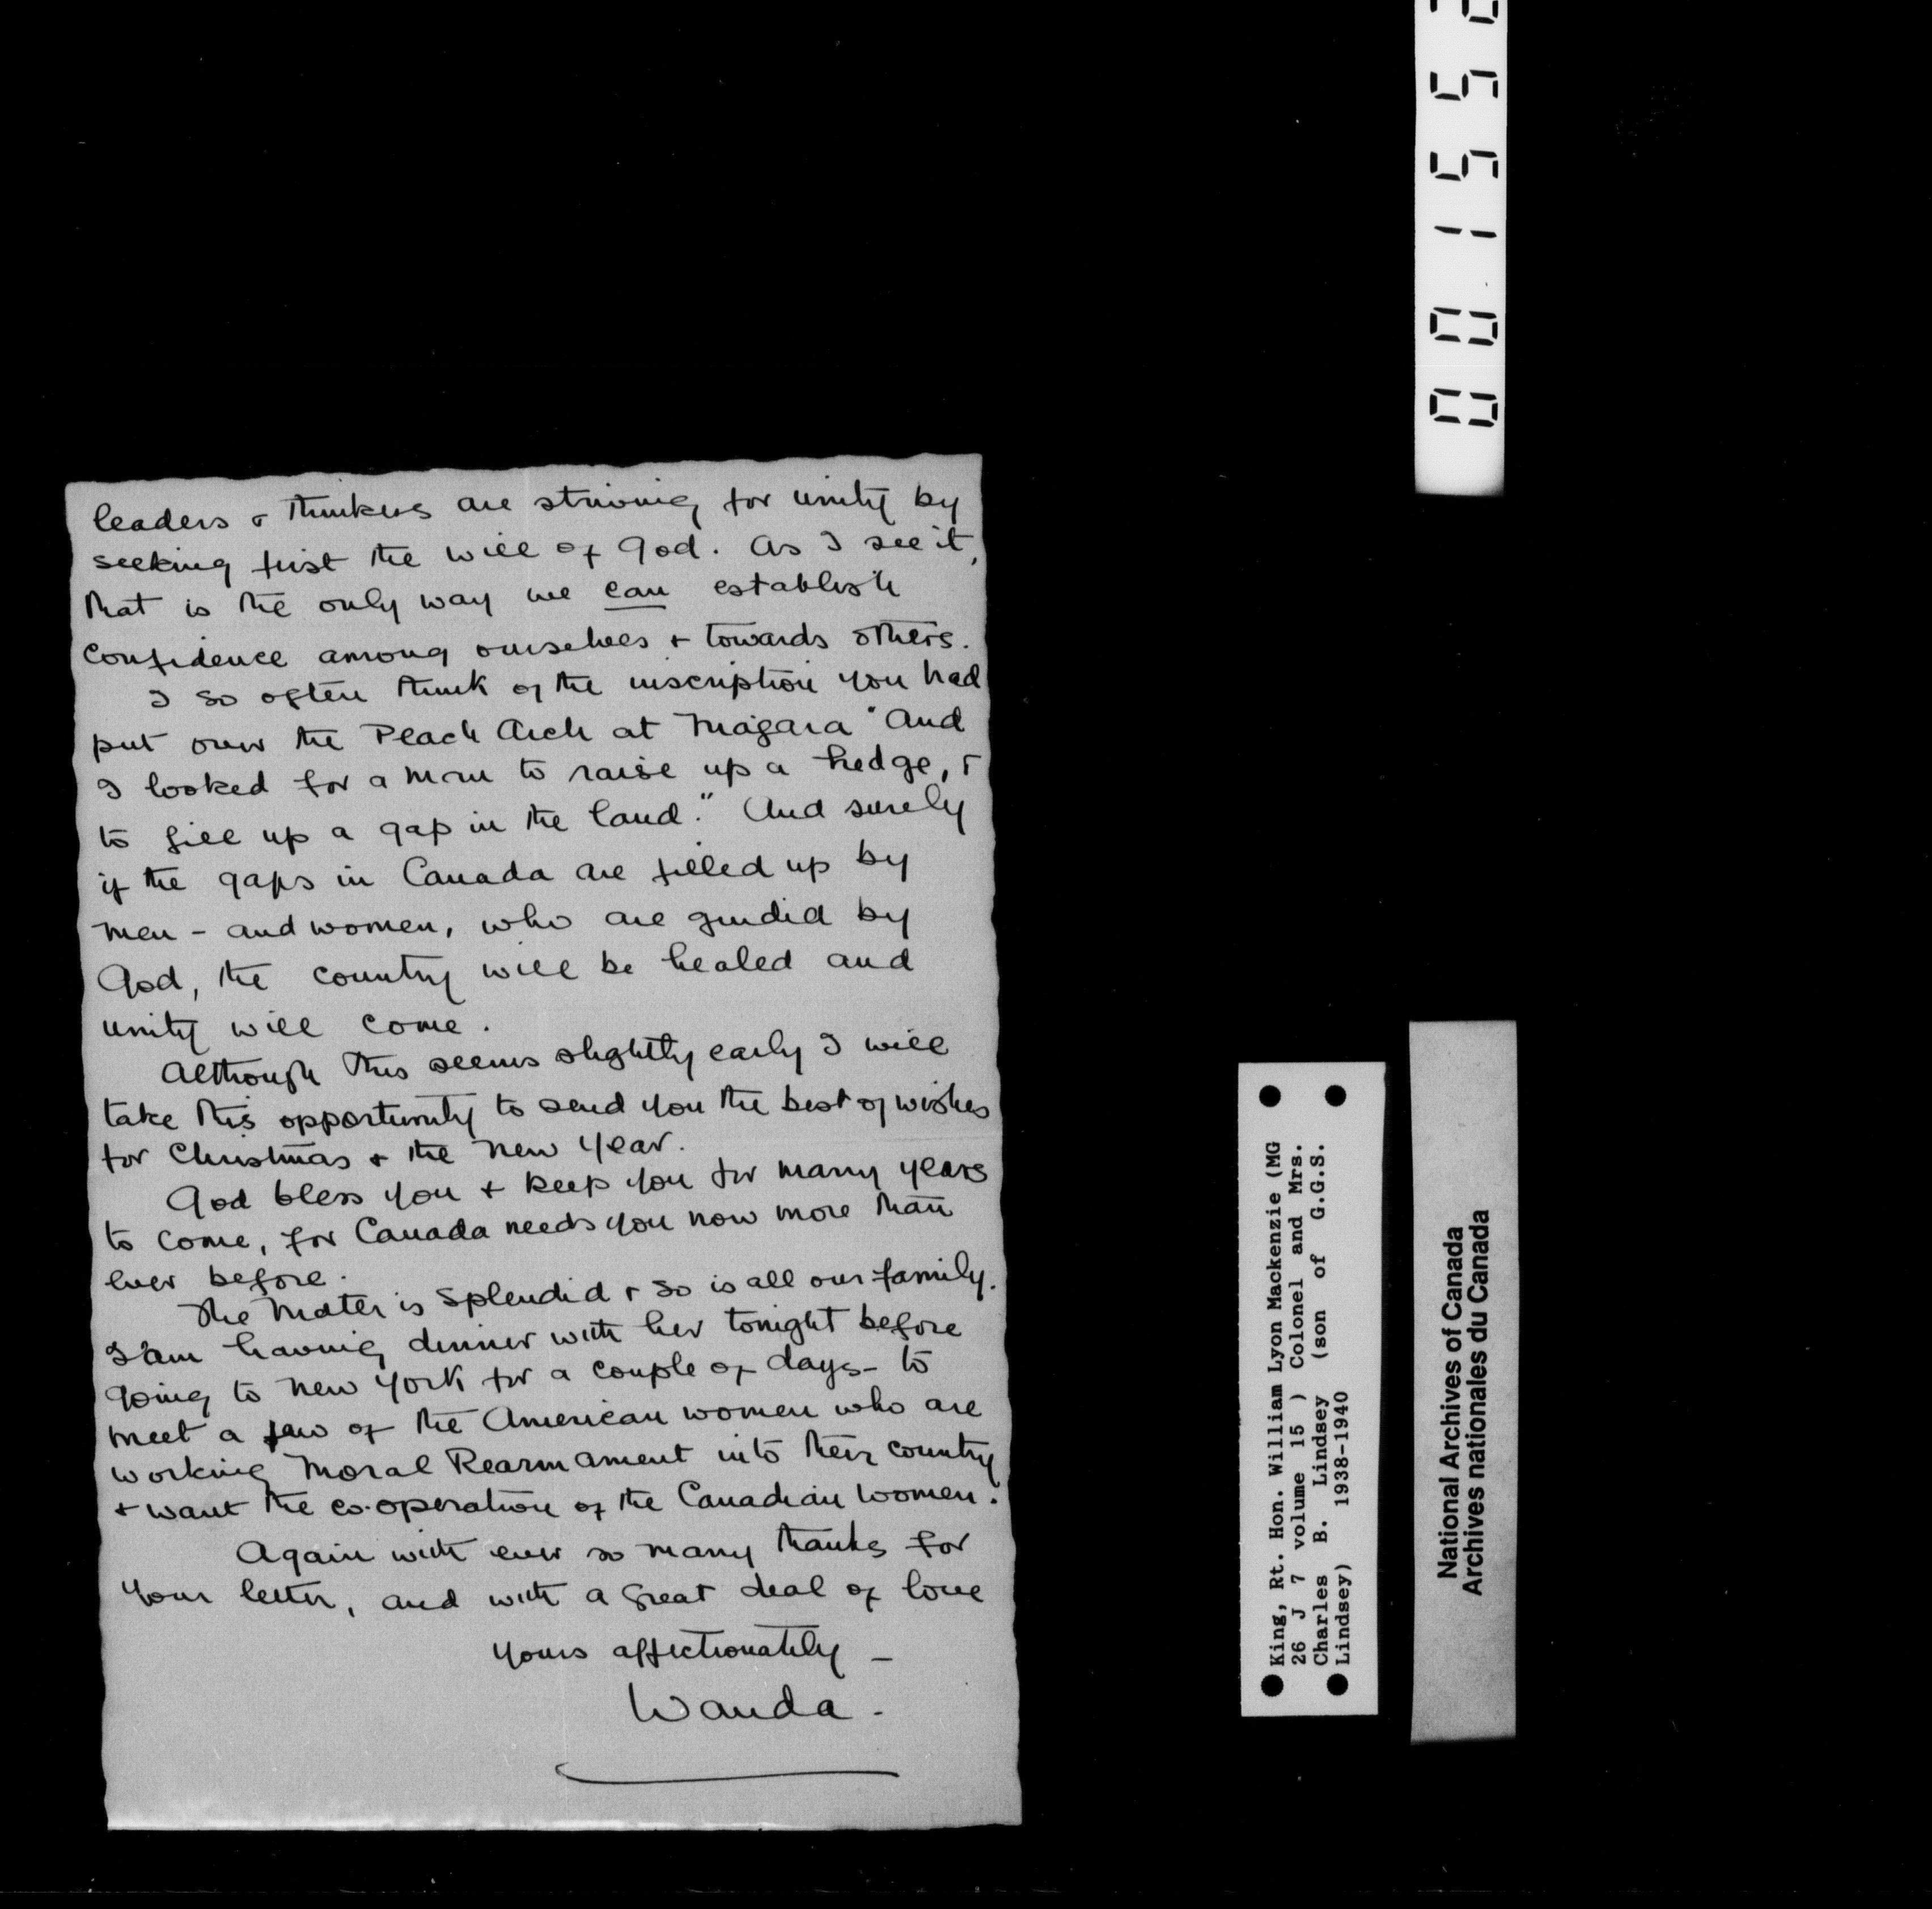 leaders & thinkers are striving for unity by
seeking first the will of God. As I see it,
that is the only way we can establish
confidence among ourselves & towards others.
I so often think of the inscription you had
put over the Peach Arch at Niagara "And
I looked for a man to raise up a hedge, &
to fill up a gap in the land." And surely
if the gaps in Canada are filled up by
men - and women, who are guided by
God, the country will be healed and
unity will come.
Although this seems slightly early I will
take this opportunity to send you the best of wishes
for Christmas & the New Year.
God bless you & keep you for many years
to come, for Canada needs you now more than
ever before.
The Mater is splendid & so is all our family.
I am having dinner with her tonight before
going to New York for a couple of days - to
meet a few of the American women who are
working Moral Rearmament into their country
& want the co-operation of the Canadian women.
Again with ever so many thanks for
your letter, and with a great deal of love
yours affectionately -
Wanda -
King, Rt. Hon. William Lyon Mackenzie (MG
26 J 7 volume 15 ) Colonel and Mrs.
Charles B. Lindsey (son of G.G.S.
Lindsey) 1938-1940
National Archives of Canada
Archives nationales du Canada
00155